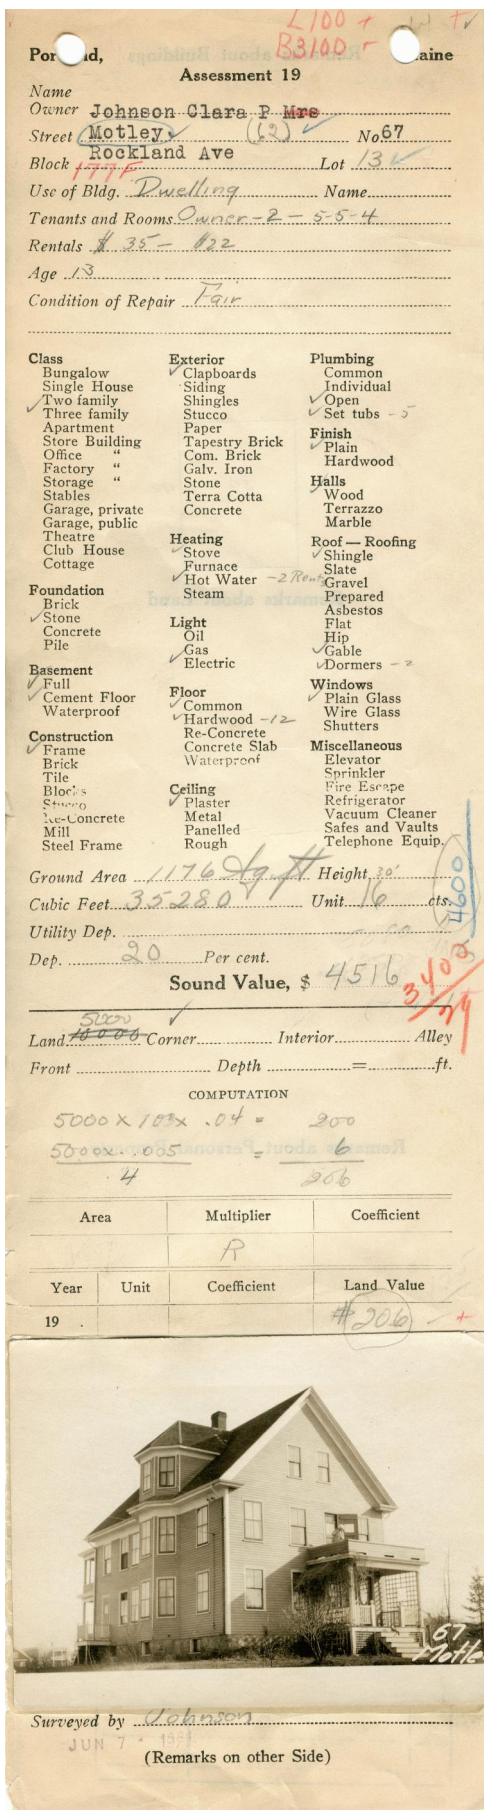 L 100 +
B 3100 -
Assessment 19
Name
Owner Johnson Clara P Mrs
Street Motley (62) No 67
Rockland Ave
Block 177F Lot 13
Use of Bldg. Dwelling Name
Tenants and Rooms Owner - 2 - 5-5-4
Rentals $ 35 - $22
Age 13
Condition of Repair Fair
Class
Bungalow
Single House
✓ Two family
Three family
Apartment
Store Building
Office "
Factory "
Storage "
Stables
Garage, private
Garage, public
Theatre
Club House
Cottage
Foundation
Brick
✓ Stone
Concrete
Pile
Basement
✓ Full
✓ Cement Floor
Waterproof
Construction
✓ Frame
Brick
Tile
Blocks
Stucco
Re-Concrete
Mill
Steel Frame
Exterior
✓ Clapboards
Siding
Shingles
Stucco
Paper
Tapestry Brick
Com. Brick
Galv. Iron
Stone
Terra Cotta
Concrete
Heating
✓ Stove
Furnace
✓ Hot Water - 2 Rents
Steam
Light
Oil
✓ Gas
✓ Electric
Floor
✓ Common
✓ Hardwood - 12
Re-Concrete
Concrete Slab
Waterproof
Ceiling
✓ Plaster
Metal
Panelled
Rough
Plumbing
Common
Individual
✓ Open
✓ Set tubs - 5
Finish
✓ Plain
Hardwood
Halls
✓ Wood
Terrazzo
Marble
Roof — Roofing
✓ Shingle
Slate
Gravel
Prepared
Asbestos
Flat
Hip
✓ Gable
✓ Dormers - 2
Windows
✓ Plain Glass
Wire Glass
Shutters
Miscellaneous
Elevator
Sprinkler
Fire Escape
Refrigerator
Vacuum Cleaner
Safes and Vaults
Telephone Equip.
Ground Area 1176 Sq. ft Height 30'
Cubic Feet 35280 Unit 16 cts.
4600
Utility Dep.
Dep. 20 Per cent.
Sound Value, $ 4516
3400
29
5000
Land 10000 Corner Interior Alley
Front Depth = ft.
COMPUTATION
5000 x 103 x .04 = 200
5000 x .005 = 6
4 206
Area Multiplier Coefficient
R
Year Unit Coefficient Land Value
19 . $ 206
67
Motle
Surveyed by Johnson
JUN 7
(Remarks on other Side)